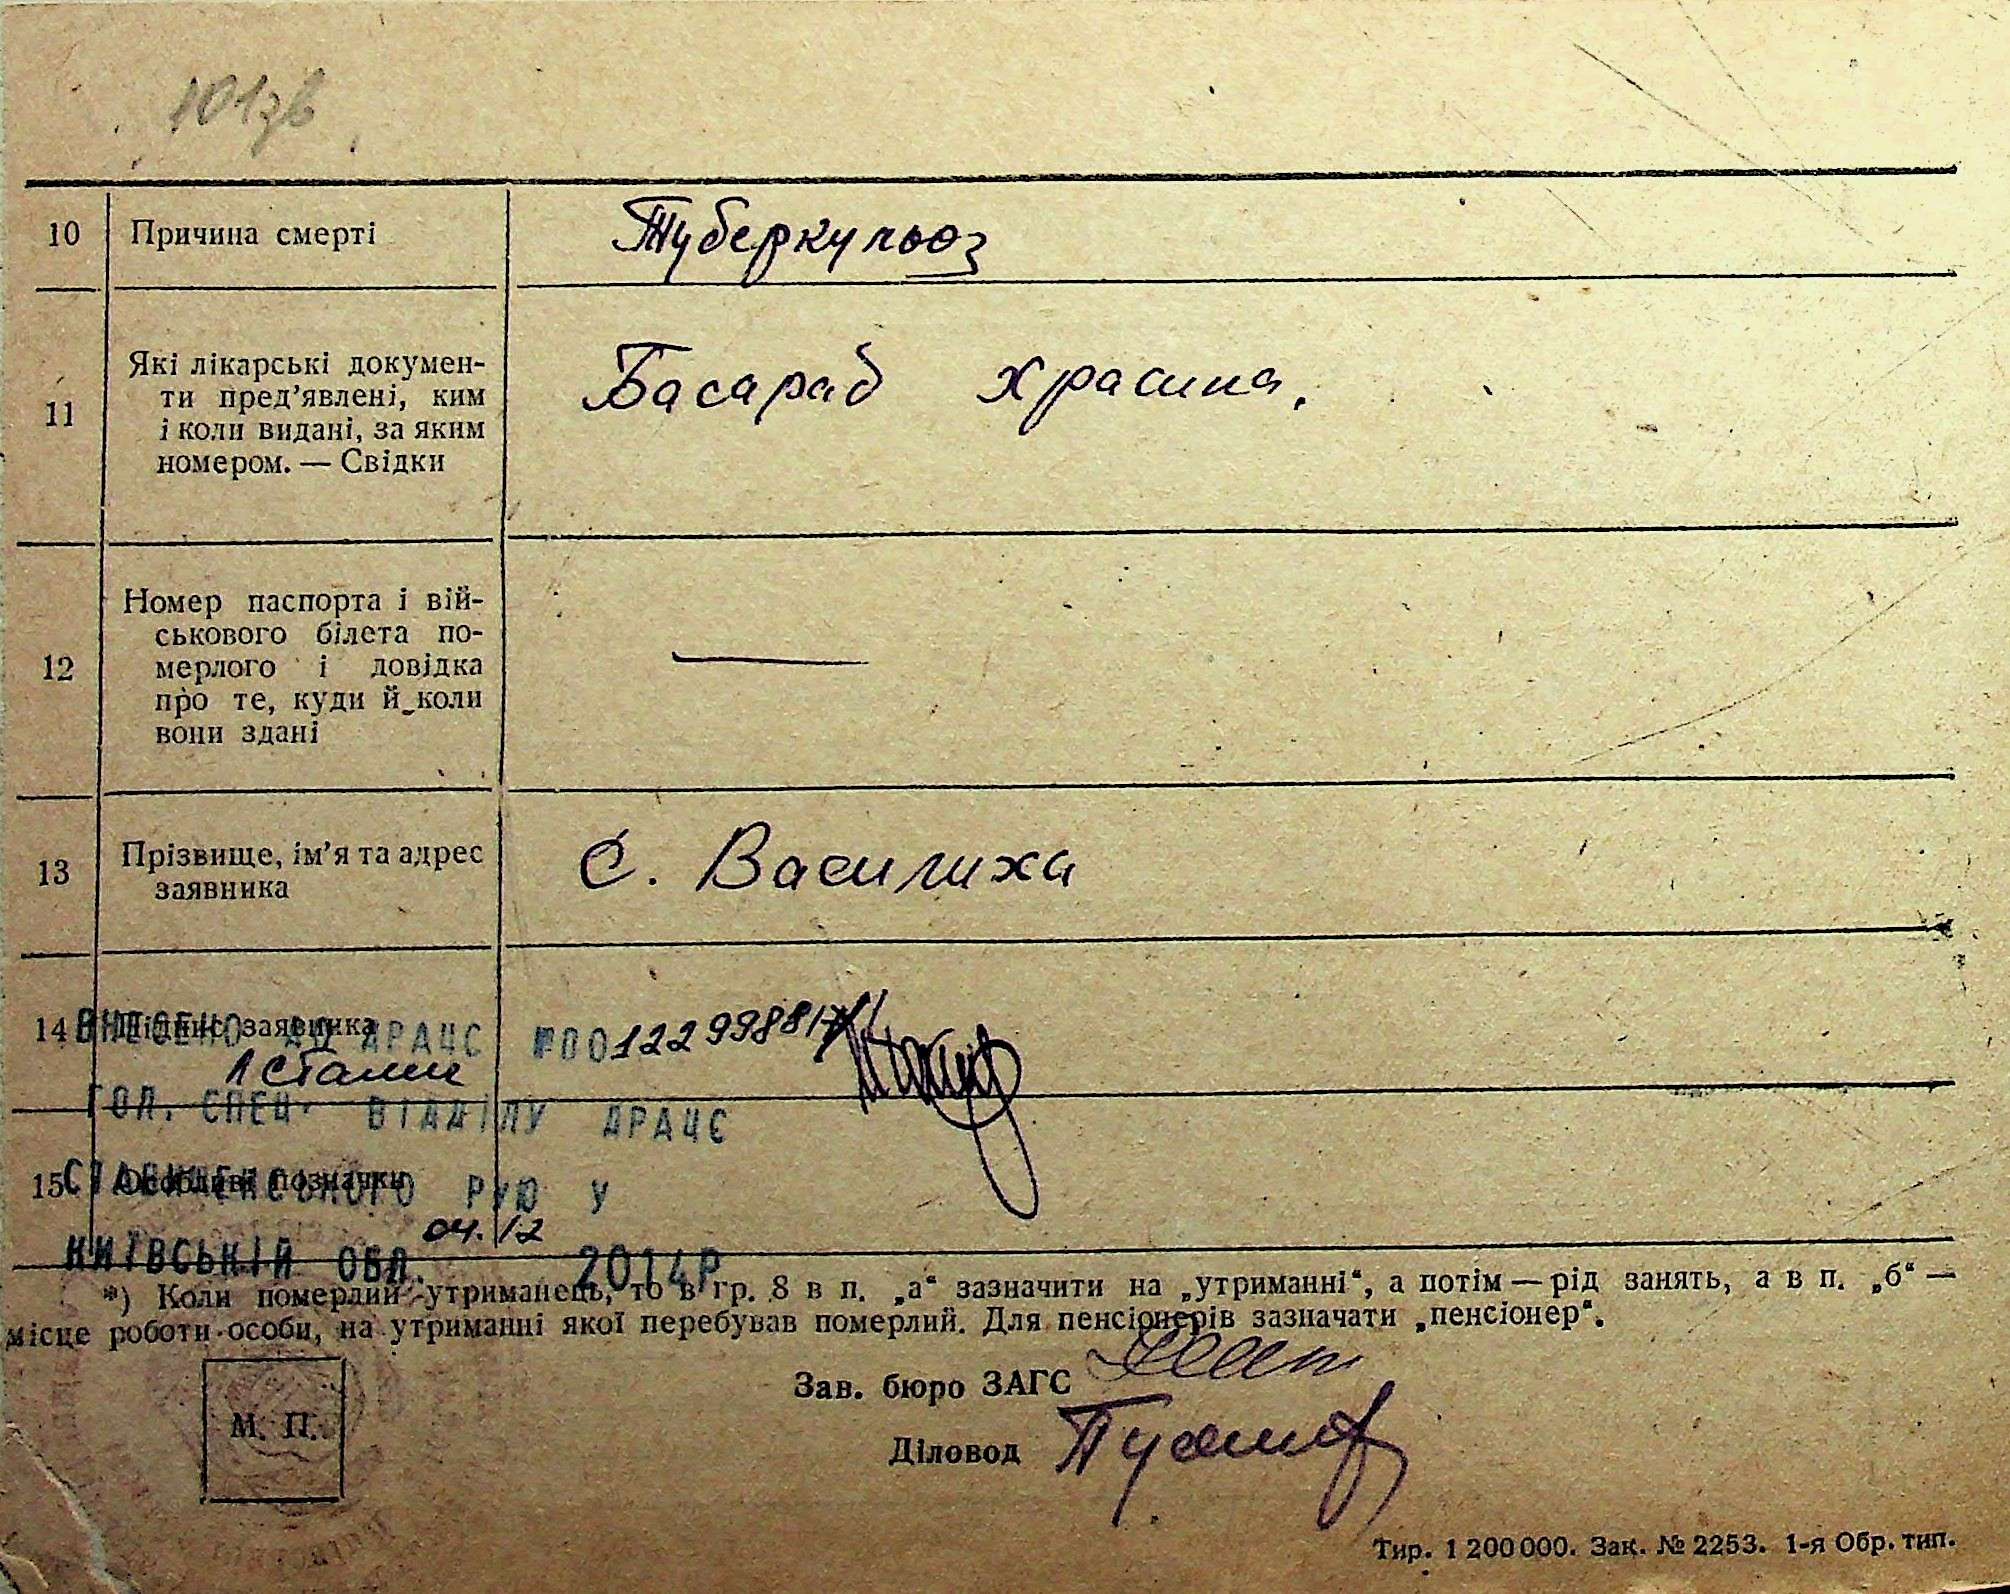 101зв
10 Причина смерті Туберкульоз
11 Які лікарські докумен-
ти пред'явлені, ким
і коли видані, за яким
номером. — Свідки
Басараб Храсина.
12 Номер паспорта і вій-
ськового білета по-
мерлого і довідка
про те, куди й коли
вони здані
—
13 Прізвище, ім'я та адрес
заявника
С. Василиха
14 Підпис заявника
ВНЕСЕНО ДО ДРАЦС №00122998817
ГОЛ. СПЕЦ. ВІДДІЛУ ДРАЦС
15 Особливі позначки
СТАВИЩЕНСЬКОГО РУЮ У
04.12
КИЇВСЬКІЙ ОБЛ. 2014Р
*) Коли померлий утриманець, то в гр. 8 в п. „а“ зазначити на „утриманні“, а потім — рід занять, а в п. „б“ —
місце роботи особи, на утриманні якої перебував померлий. Для пенсіонерів зазначати „пенсіонер“.
Зав. бюро ЗАГС
М. П.
Діловод
Тир. 1 200 000. Зак. № 2253. 1-я Обр. тип.